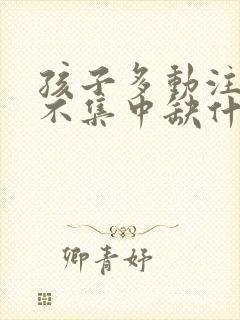 孩子多動注
不集中缺什
卿青妤